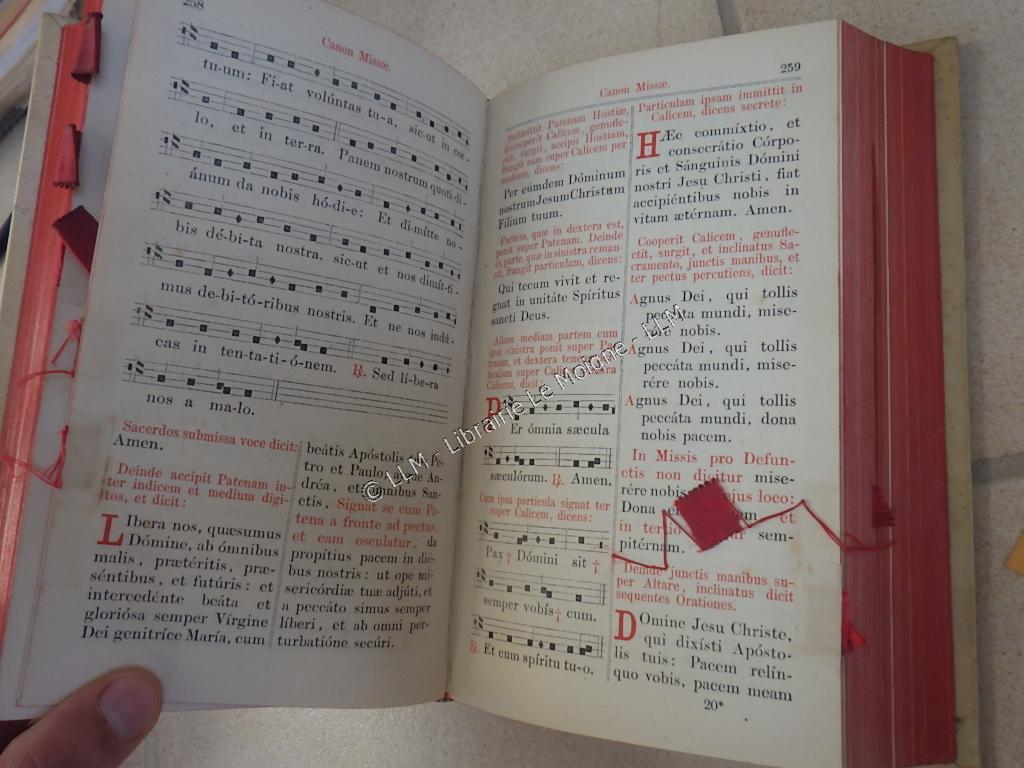 258
Canon Missæ.
tu-um: Fi-at volúntas tu-a, sic-ut in cœ-
lo, et in ter-ra. Panem nostrum quoti-di-
ánum da nobis hó-di-e: Et di-mítte no-
bis dé-bi-ta nostra, sic-ut et nos dimít-ti-
mus de-bi-tó-ribus nostris. Et ne nos indú-
cas in ten-ta-ti-ó-nem. ℟. Sed lí-bera
nos a ma-lo.
Sacerdos submissa voce dicit:
Amen.
Deinde accipit Patenam in-
ter indicem et medium digi-
tos, et dicit:
LIbera nos, quæsumus
Dómine, ab ómnibus
malis, prætéritis, præ-
séntibus, et futúris: et
intercedénte beáta et
gloriósa semper Vírgine
Dei genitríce María, cum
beátis Apóstolis Pe-
tro et Paulo, atque An-
dréa, et ómnibus San-
ctis, Signat se cum Pa-
tena a fronte ad pectus,
et eam osculatur, da
propítius pacem in dié-
bus nostris: ut ope mi-
sericórdiæ tuæ adjúti, et
a peccáto simus semper
líberi, et ab omni per-
turbatióne secúri.
Canon Missæ.
259
Submittit Patenam Hostiæ,
discooperit Calicem, genufle-
ctit, surgit, accipit Hostiam,
frangit eam super Calicem per
medium, dicens:
Per eúmdem Dóminum
nostrum Jesum Christum
Fílium tuum.
Partem, quæ in dextera est,
ponit super Patenam. Deinde
ex parte, quæ in sinistra reman-
sit, frangit particulam, dicens:
Qui tecum vivit et re-
gnat in unitáte Spíritus
sancti Deus.
Aliam mediam partem cum
ipsa sinistra ponit super Pa-
tenam, et dextera tenens
particulam super Calicem, sinistra
Calicem, dicit:
PEr ómnia sæcula
sæculórum. ℟. Amen.
Cum ipsa particula signat ter
super Calicem, dicens:
Pax † Dómini sit †
semper vobís † cum.
℟. Et cum spíritu tu-o.
Particulam ipsam immittit in
Calicem, dicens secrete:
HÆc commíxtio, et
consecrátio Córpo-
ris et Sánguinis Dómini
nostri Jesu Christi, fiat
accipiéntibus nobis in
vitam ætérnam. Amen.
Cooperit Calicem, genufle-
ctit, surgit, et inclinatus Sa-
cramento, junctis manibus, et
ter pectus percutiens, dicit:
Agnus Dei, qui tollis
peccáta mundi, mise-
rére nobis.
Agnus Dei, qui tollis
peccáta mundi, mise-
rére nobis.
Agnus Dei, qui tollis
peccáta mundi, dona
nobis pacem.
In Missis pro Defun-
ctis non dicitur mise-
rére nobis, ejus loco:
Dona et
in tertio sem-
pitérnam.
Deinde junctis manibus su-
per Altare, inclinatus dicit
sequentes Orationes.
DOmine Jesu Christe,
qui dixísti Apósto-
lis tuis: Pacem relín-
quo vobis, pacem meam
20*
© LLM - Librairie Le Moigne - LLM